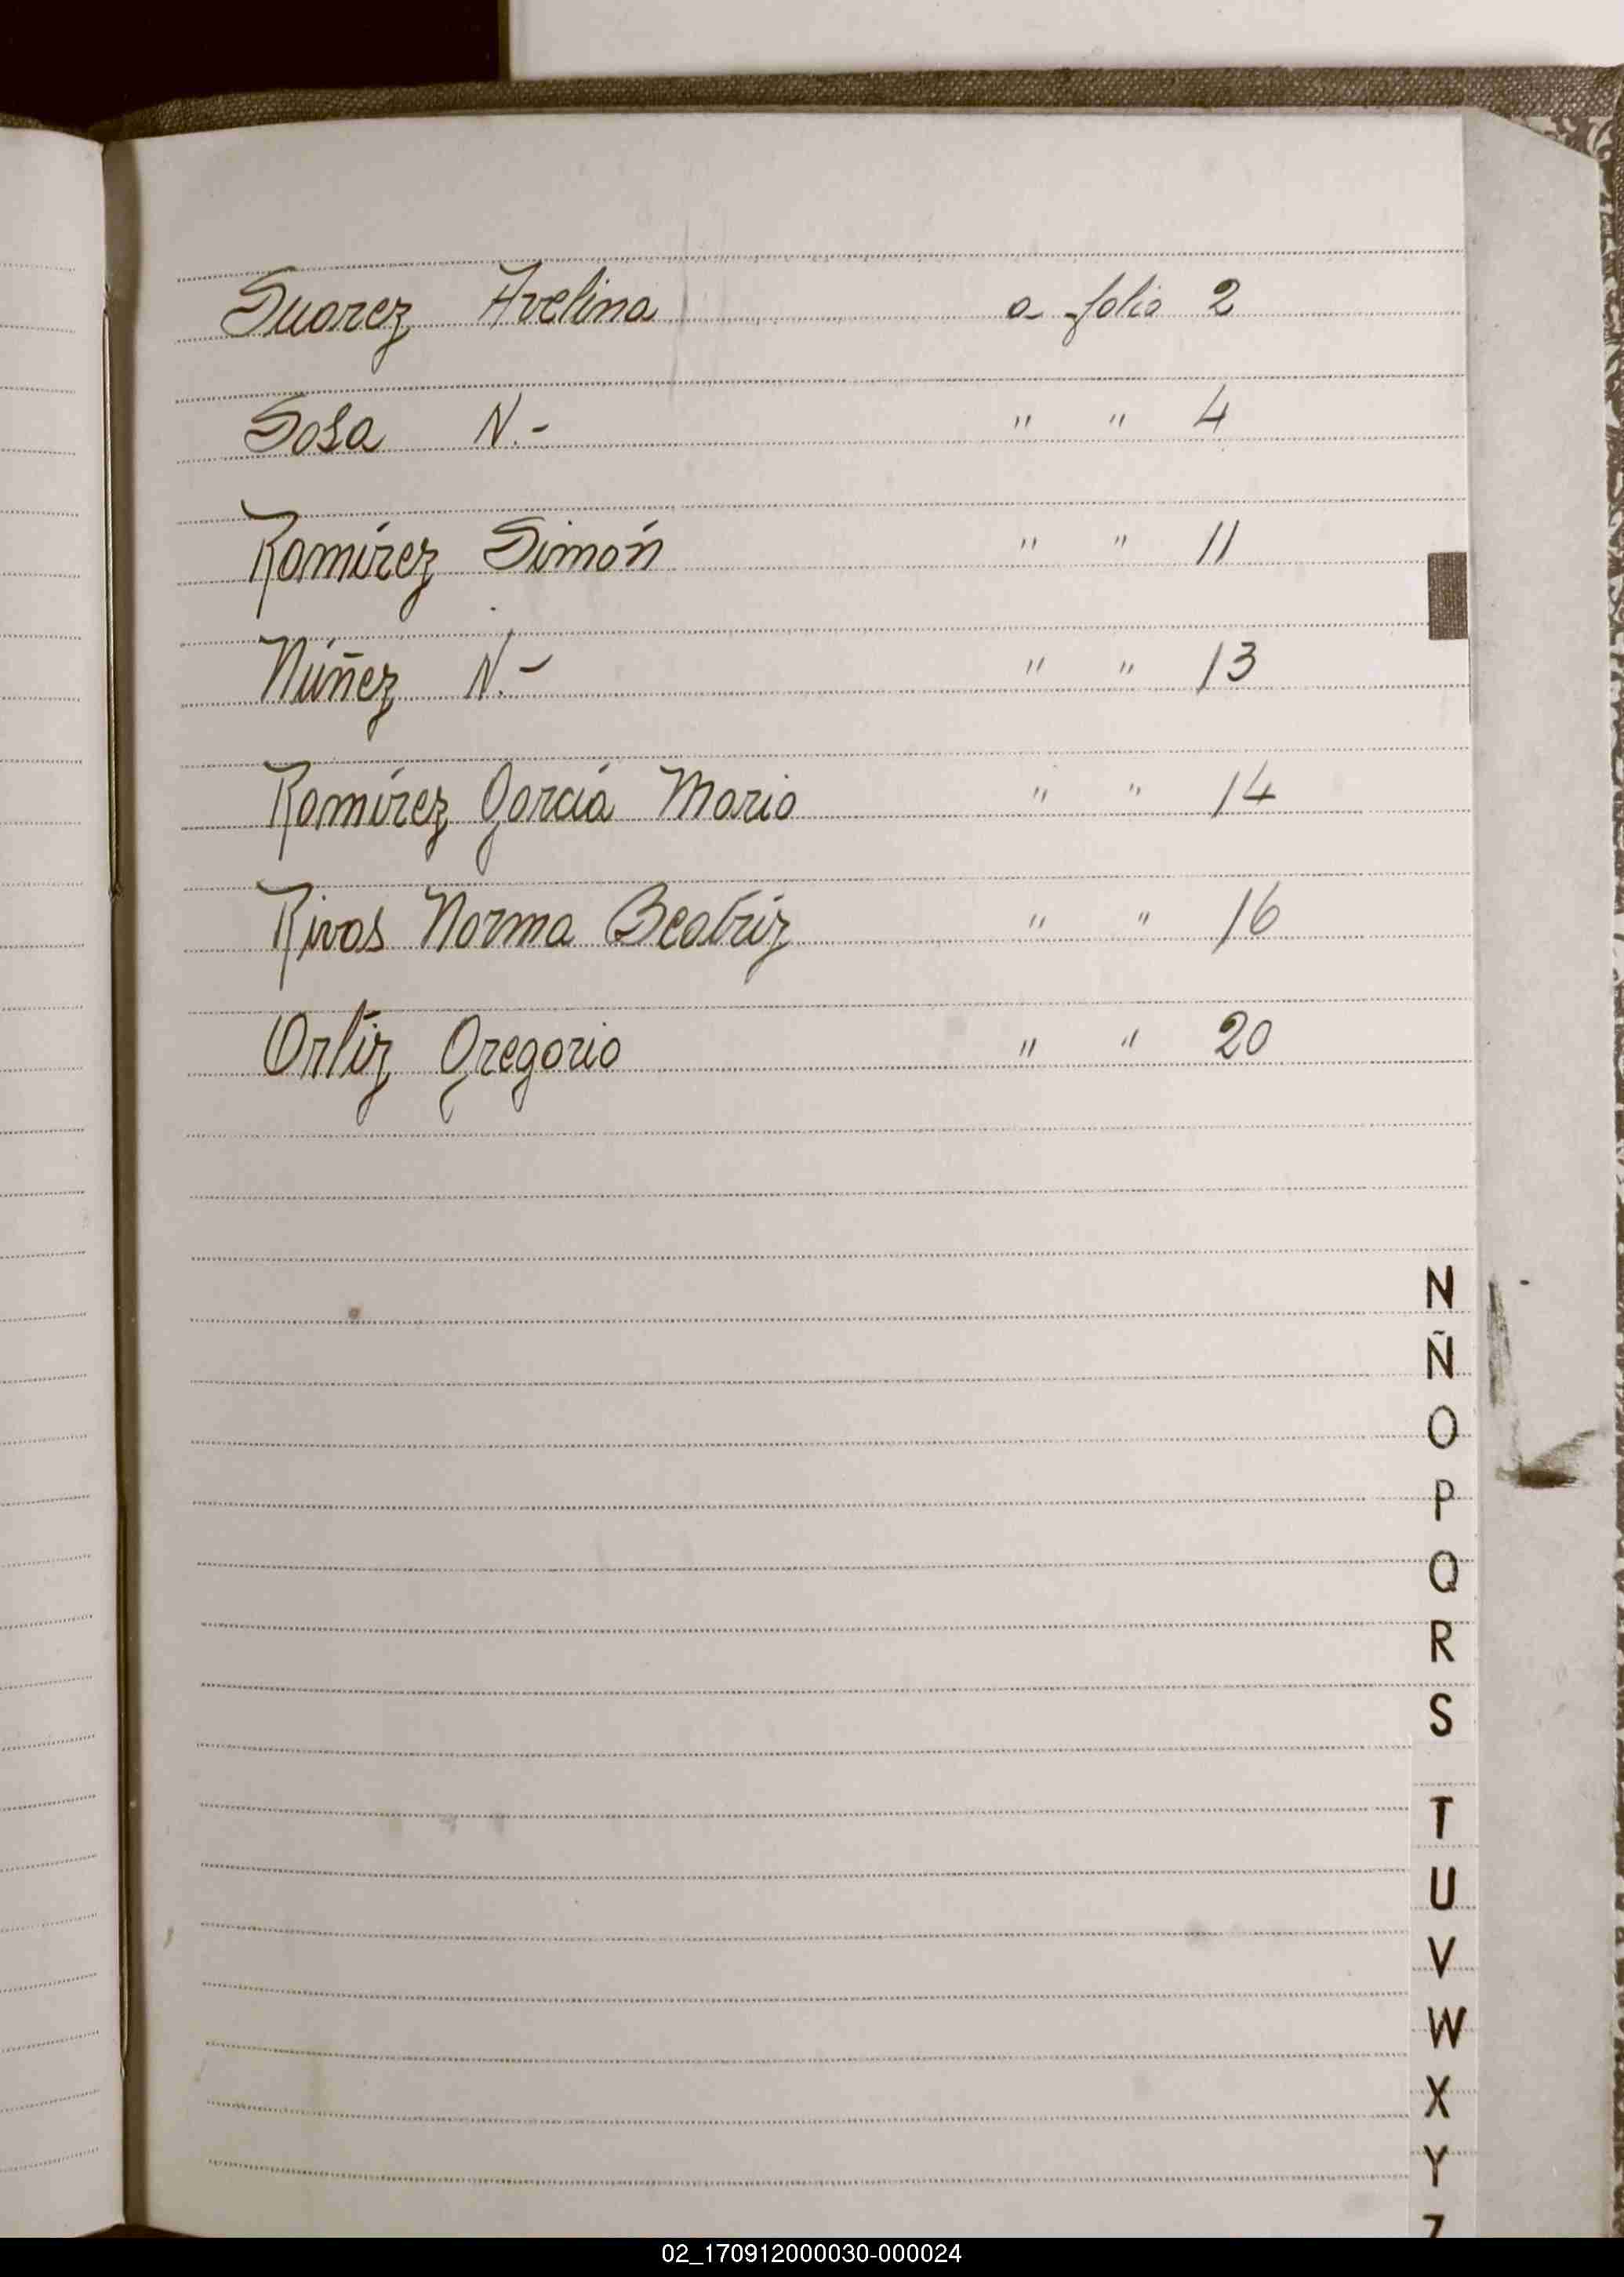 Suarez Avelina a folio 2
Sosa N.- " " 4
Ramírez Simón " " 11
Núñez N.- " " 13
Ramírez García Mario " " 14
Rivas Norma Beatríz " " 16
Ortíz Gregorio " " 20
N
Ñ
O
P
Q
R
S
T
U
V
W
X
Y
Z
02_170912000030-000024